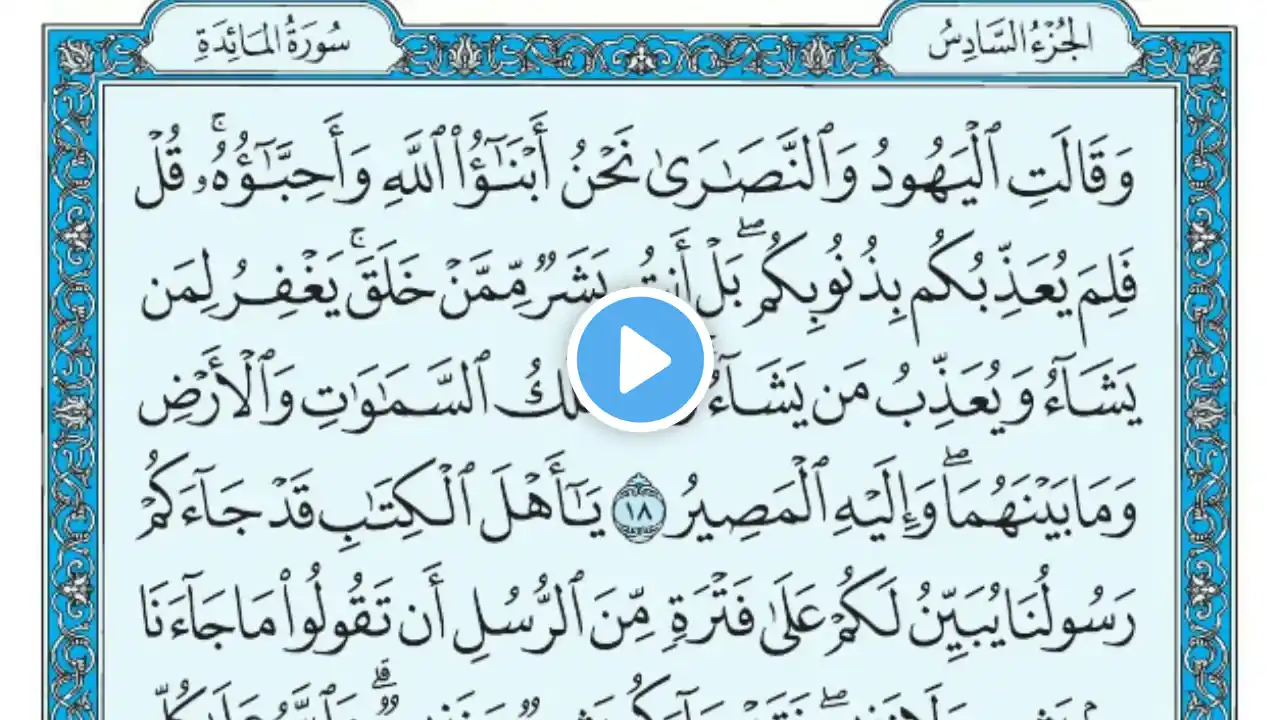 الجُزْءُ السَّادِسُ
سُورَةُ المَائِدَةِ
وَقَالَتِ ٱلْيَهُودُ وَٱلنَّصَٰرَىٰ نَحْنُ أَبْنَٰٓؤُا۟ ٱللَّهِ وَأَحِبَّٰٓؤُهُۥ ۚ قُلْ
فَلِمَ يُعَذِّبُكُم بِذُنُوبِكُم ۖ بَلْ أَنتُم بَشَرٌ مِّمَّنْ خَلَقَ ۚ يَغْفِرُ لِمَن
يَشَآءُ وَيُعَذِّبُ مَن يَشَآءُ ٱلسَّمَٰوَٰتِ وَٱلْأَرْضِ
وَمَا بَيْنَهُمَا ۖ وَإِلَيْهِ ٱلْمَصِيرُ ١٨ يَٰٓأَهْلَ ٱلْكِتَٰبِ قَدْ جَآءَكُمْ
رَسُولُنَا يُبَيِّنُ لَكُمْ عَلَىٰ فَتْرَةٍ مِّنَ ٱلرُّسُلِ أَن تَقُولُوا۟ مَا جَآءَنَا